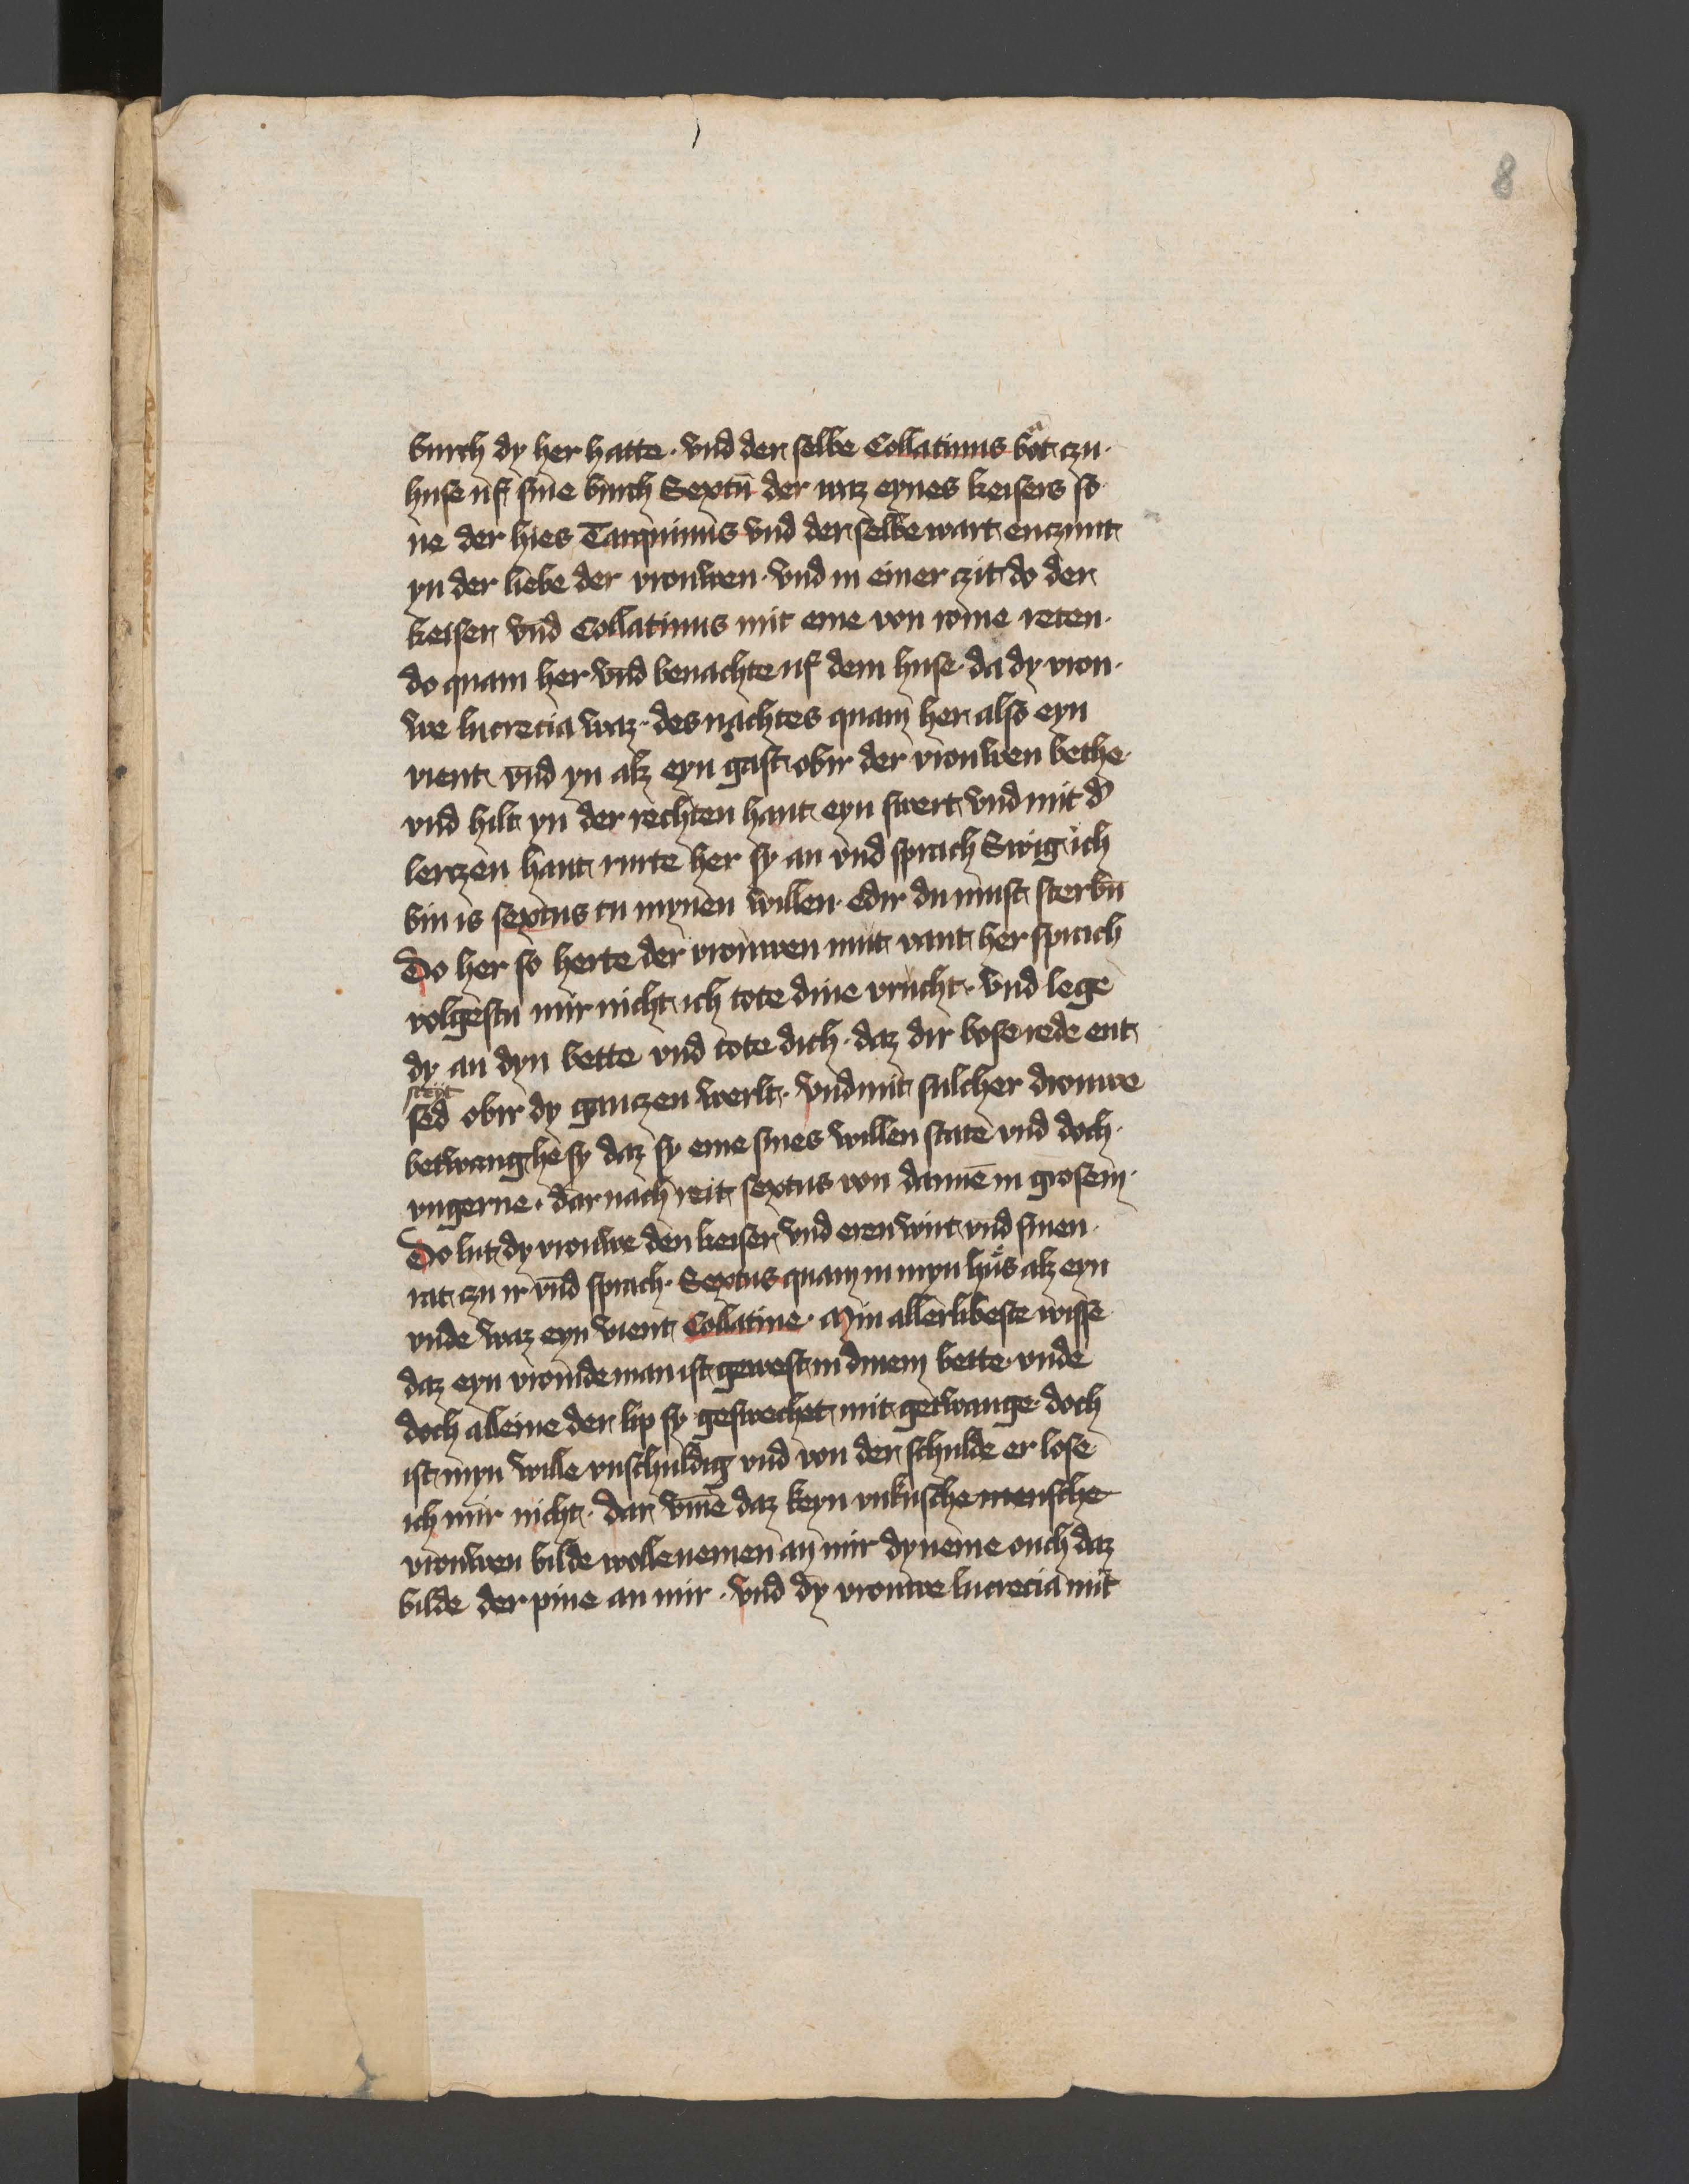 8
burch dy her hatte · vnd der selbe Collatinus bat czu ·
huse uf sine burch Sextū der waz eynes keisers so
ne der hies Tarquinius vnd der selbe wart enczunt
yn der liebe der vrouwen · vnd in einer czit do der
keiser vnd Collatinus mit eme von rome reten ·
do quam her vnd benachte uf dem huse · da dy vrou ·
we lucrecia waz · des nachtes quam her also eyn
vient vnd yn alz eyn gast obir der vrouwen bethe ·
vnd hilt yn der rechten hant eyn swert vnd mit d'
lerczen hant rurte her sy an vnd sprach Swig ich
bin is sextus tu mynen willen · edir du must sterbn̄
Do her so herte der vrouwen mut vant her sprach
volgestu mir nicht ich tote dine vrucht · vnd lege
dy an dyn bette vnd tote dich · daz dir bose rede ent
steyt
sed obir dy ganczen werlt · vnd mit sulcher drouwe
betwang he sy daz sy eme sines willen state vnd doch ·
vngerne · dar nach reit sextus von dannē in grosem ·
Do lut dy vrouwe den keiser vnd eren wirt vnd sinen ·
rat czu ir vnd sprach · Sextus quam in myn hus alz eyn
vnde waz eyn vient Collatine · Min allerlibeste wisse
daz eyn vromde man ist gewest in dinem bette · vnde
doch alleine der lip sy geswechet mit getwange · doch
ist myn wille vnschuldig vnd von der schulde er lose
ich mir nicht · dar vmē daz keyn vnkusche mensche
vrouwen bilde wolle nemen an mir dy neme ouch daz
bilde der pine an mir · vnd dy vrouwe lucrecia mit